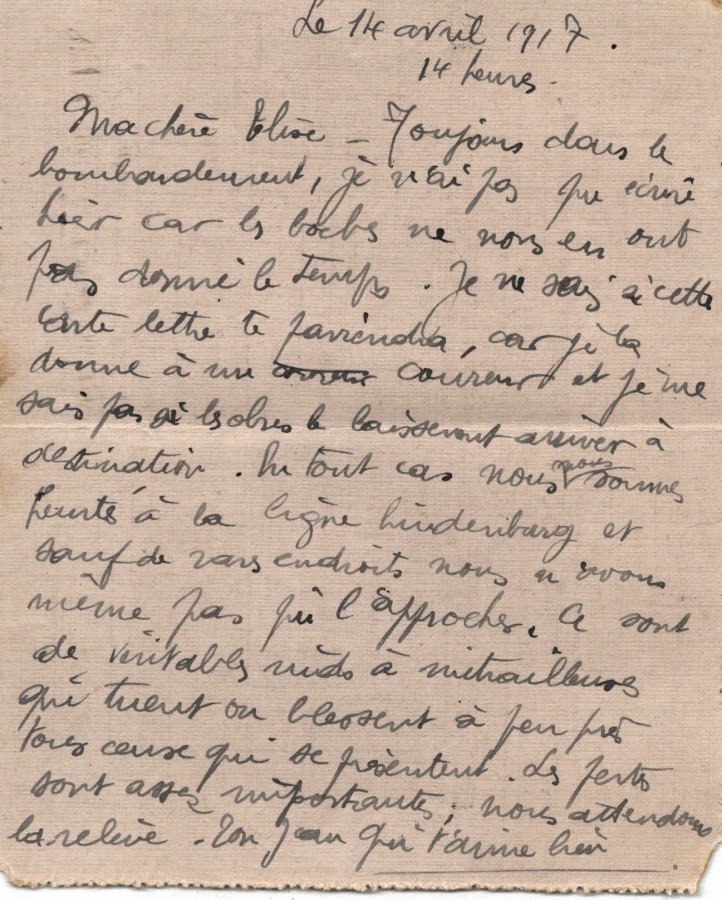 Le 14 avril 1917.
14 heures.
Ma chère Elise – Toujours dans le
bombardement, je n'ai pas pu écrire
hier car les boches ne nous en ont
pas donné le temps. Je ne sais si cette
lettre te parviendra, car je la
donne à un coureur et je ne
sais pas si les obus le laisseront arriver à
destination. En tout cas nous nous sommes
heurtés à la ligne hindenburg et
sauf de rares endroits nous n'avons
même pas pu l'approcher. Ce sont
de véritables nids à mitrailleuses
qui tuent ou blessent à peu près
tous ceux qui se présentent. Les pertes
sont assez importantes, nous attendons
la relève. Ton Jean qui t'aime bien.